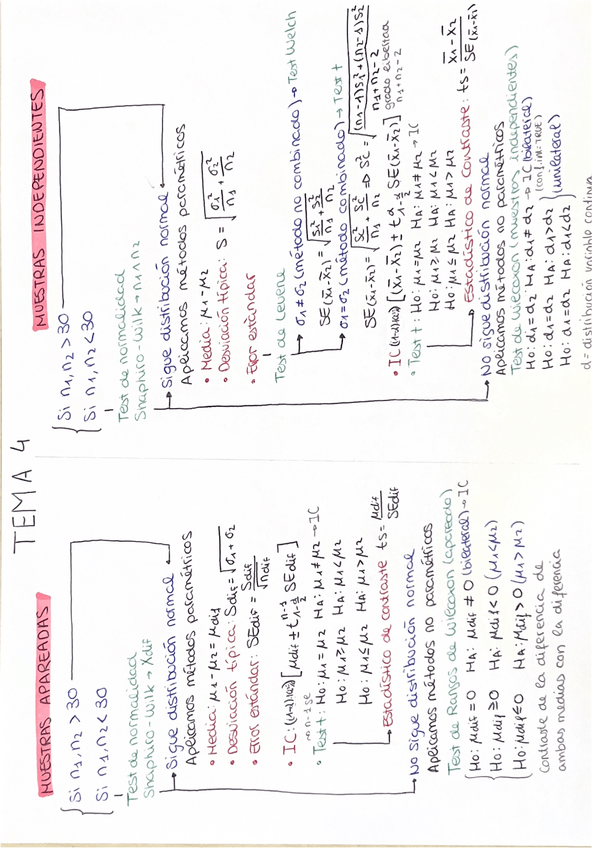 TEMA 4
MUESTRAS APAREADAS
Si n₁, n₂ > 30
Si n₁, n₂ < 30
Test de normalidad
Shaphiro-Wilk → Xdif
Sigue distribución normal
Aplicamos métodos paramétricos
• Media: μ₁ - μ₂ = μdif
• Desviación típica: Sdif = √σ₁ + σ₂
• Error estándar: SEdif = Sdif/√ndif
• IC: ((1-α)·100%) [μdif ± t n-1 1-α/2 SEdif]
• Test t: H₀: μ₁ = μ₂ HA: μ₁ ≠ μ₂ → IC
H₀: μ₁ ≥ μ₂ HA: μ₁ < μ₂
H₀: μ₁ ≤ μ₂ HA: μ₁ > μ₂
Estadístico de contraste ts = μdif/SEdif
No sigue distribución normal
Aplicamos métodos no paramétricos
Test de Rangos de Wilcoxon (apareado)
H₀: μdif = 0 HA: μdif ≠ 0 (bilateral) → IC
H₀: μdif ≥ 0 HA: μdif < 0 (μ₁ < μ₂)
H₀: μdif ≤ 0 HA: μdif > 0 (μ₁ > μ₂)
contraste de la diferencia de
ambas medias con la diferencia
MUESTRAS INDEPENDIENTES
Si n₁, n₂ > 30
Si n₁, n₂ < 30
Test de normalidad
Shaphiro-Wilk → n₁ n n₂
Sigue distribución normal
Aplicamos métodos paramétricos
• Media: μ₁ - μ₂
• Desviación típica: S = √σ₁²/n₁ + σ₂²/n₂
• Error estándar
Test de Levene
σ₁ ≠ σ₂ (método no combinado) → Test Welch
SE(x̄₁-x̄₂) = √S₁²/n₁ + S₂²/n₂
σ₁ = σ₂ (método combinado) → Test t
SE(x̄₁-x̄₂) = √Sc²/n₁ + Sc²/n₂ ⇒ Sc = √(n₁-1)S₁² + (n₂-1)S₂²/n₁+n₂-2
• IC (1-α)·100% [(x̄₁-x̄₂) ± t 1-α/2 SE(x̄₁-x̄₂)] grados libertad
n₁+n₂-2
• Test t: H₀: μ₁ = μ₂ HA: μ₁ ≠ μ₂ → IC
H₀: μ₁ ≥ μ₂ HA: μ₁ < μ₂
H₀: μ₁ ≤ μ₂ HA: μ₁ > μ₂
Estadístico de contraste: ts = x̄₁ - x̄₂/SE(x̄₁-x̄₂)
No sigue distribución normal
Aplicamos métodos no paramétricos
Test de Wilcoxon (muestras independientes)
H₀: d₁ = d₂ HA: d₁ ≠ d₂ → IC (bilateral)
(conf.int=TRUE)
H₀: d₁ = d₂ HA: d₁ > d₂
H₀: d₁ = d₂ HA: d₁ < d₂ (unilateral)
d = distribución variable continua